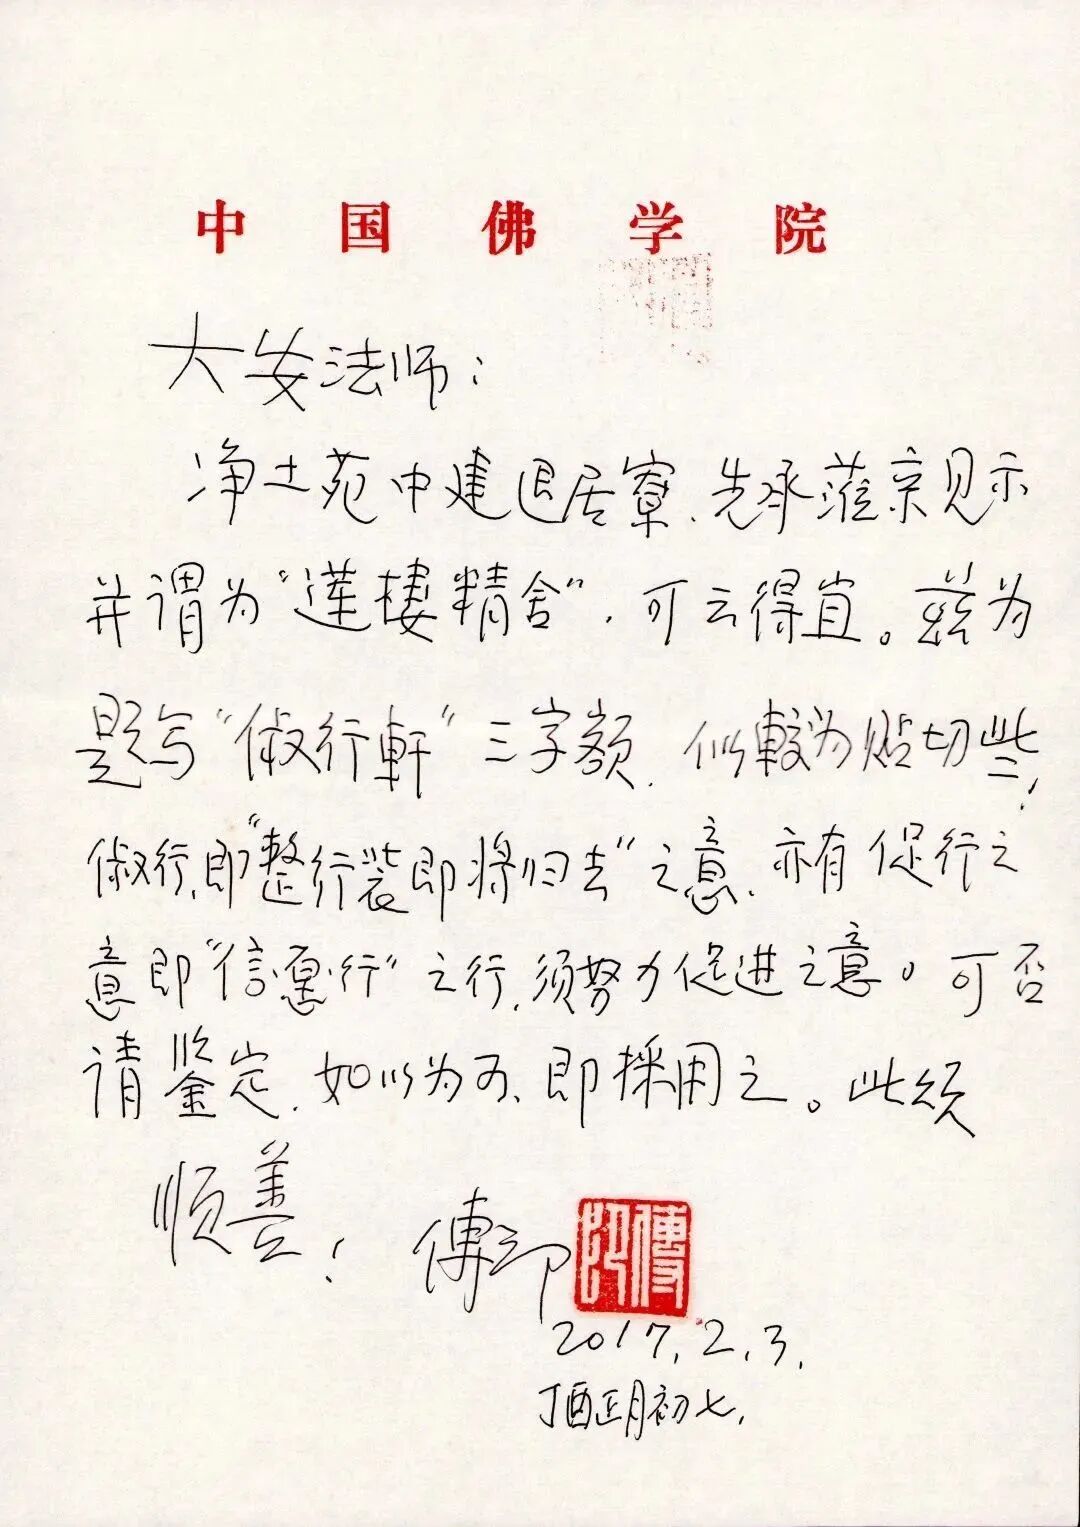 中国佛学院
大安法师：
净土苑中建退居寮，先承蒞京见示
并谓为“莲楼精舍”，可云得宜。兹为
题写“俶行軒”三字额，似較为贴切些，
俶行，即“整行装即将归去”之意，亦有促行之
意即“信愿行”之行，须努力促进之意。可否
请鉴定，如以为可，即採用之。此颂
顺善！
傅印
傅印
2017.2.3.
丁酉正月初七，